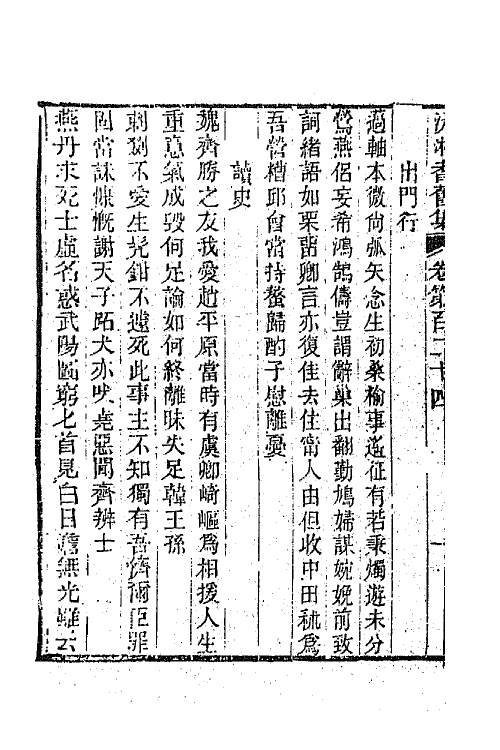 沅湘耆舊集 卷第百二十四
出門行
薖軸本微尙弧矢念生初桑榆事遙征有若秉燭遊未分
鶯燕侶妄希鴻鵠儔豈謂辭巢出翻勤鳩婦謀婉娩前致
詞緒語如栗留卿言亦復佳去住甯人由但收中田秫爲
吾營糟邱自當持螯歸酌子慰離憂
讀史
魏齊勝之友我愛趙平原當時有虞卿崎嶇爲相援人生
重意氣成毀何足論如何終離昧失足韓王孫
刺劂不愛生髠鉗不遽死此事主不知獨有吾儕爾臣罪
固當誅慷慨謝天子跖犬亦吠堯惡聞齊辨士
燕丹求死士虛名惑武陽圖窮匕首見白日慘無光雖云